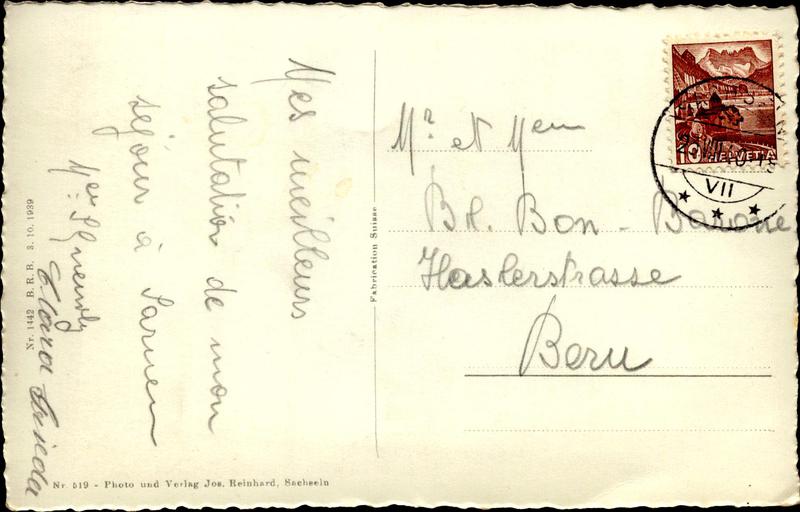 Mes meilleurs
salutation de mon
séjour à Sarnen
Mme
Clara Frieda
Mr et Mem
Bl. Bon - Barone
Haslerstrasse
Bern
10 HELVETIA
VII
Fabrication Suisse
Nr. 1442 B.R.B. 3.10.1939
Nr. 519 - Photo und Verlag Jos. Reinhard, Sachseln